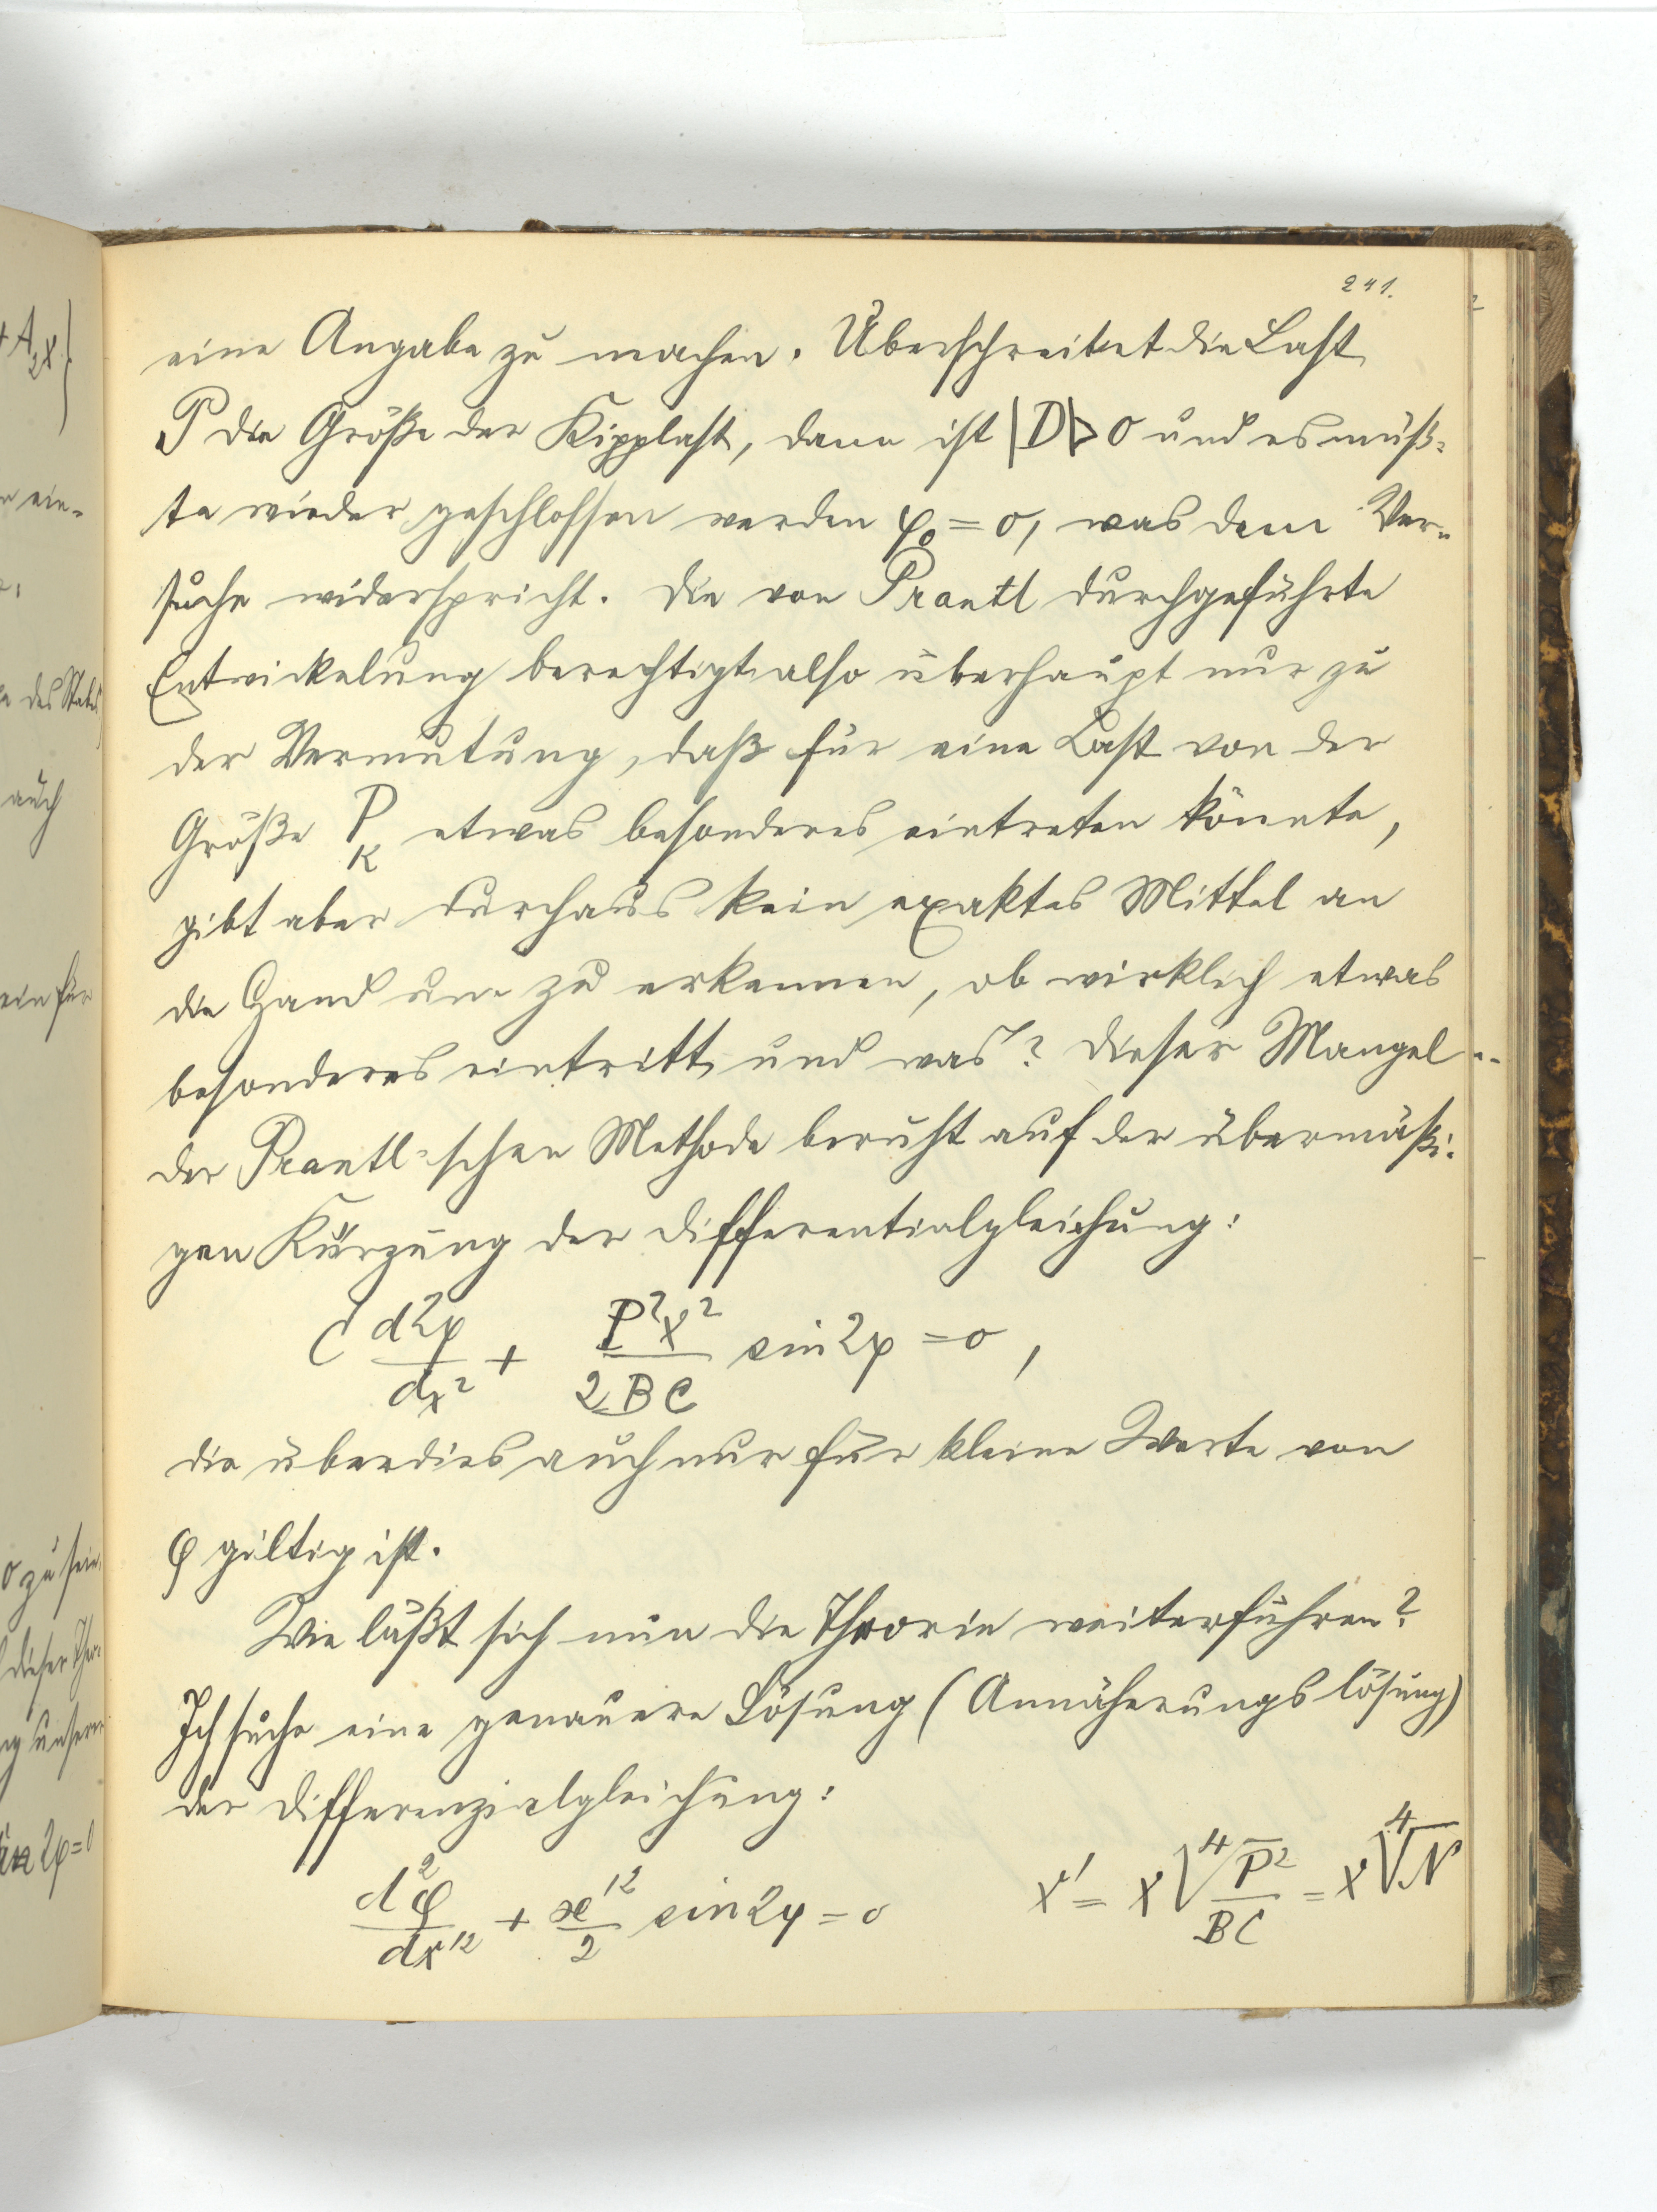 241.
eine Angabe zu machen. Überschreitet die Last
P die Größe der Kipplast, dann ist |D|>0 und es müß-
te wieder geschlossen werden φ₀ = 0, was dem Ver-
suche widerspricht. Die von Prantl durchgeführte
Entwickelung berechtigt also überhaupt nur zu
der Vermutung, daß für eine Last von der
Größe P_K etwas besonderes eintreten könnte,
gibt aber durchaus kein exaktes Mittel an
die Hand um zu erkennen, ob wirklich etwas
besonderes eintritt und was? Dieser Mangel
der Prantl-schen Methode beruht auf der übermäßi-
gen Kürzung der Differentialgleichung:
C d²φ/dx² + P²x²/2BC sin 2φ = 0,
die überdies auch nur für kleine Werte von
φ gültig ist.
Wie läßt sich nun die Theorie weiterführen?
Ich suche eine genauere Lösung (Annäherungslösung)
der Differenzialgleichung:
d²φ/dx'² + x'²/2 sin 2φ = 0 x' = x ⁴√P²/BC = x ⁴√N
+A₂x
ein-
des Stabes
auch
ein für
0 zu sein
dieser
unserer
sin 2φ=0